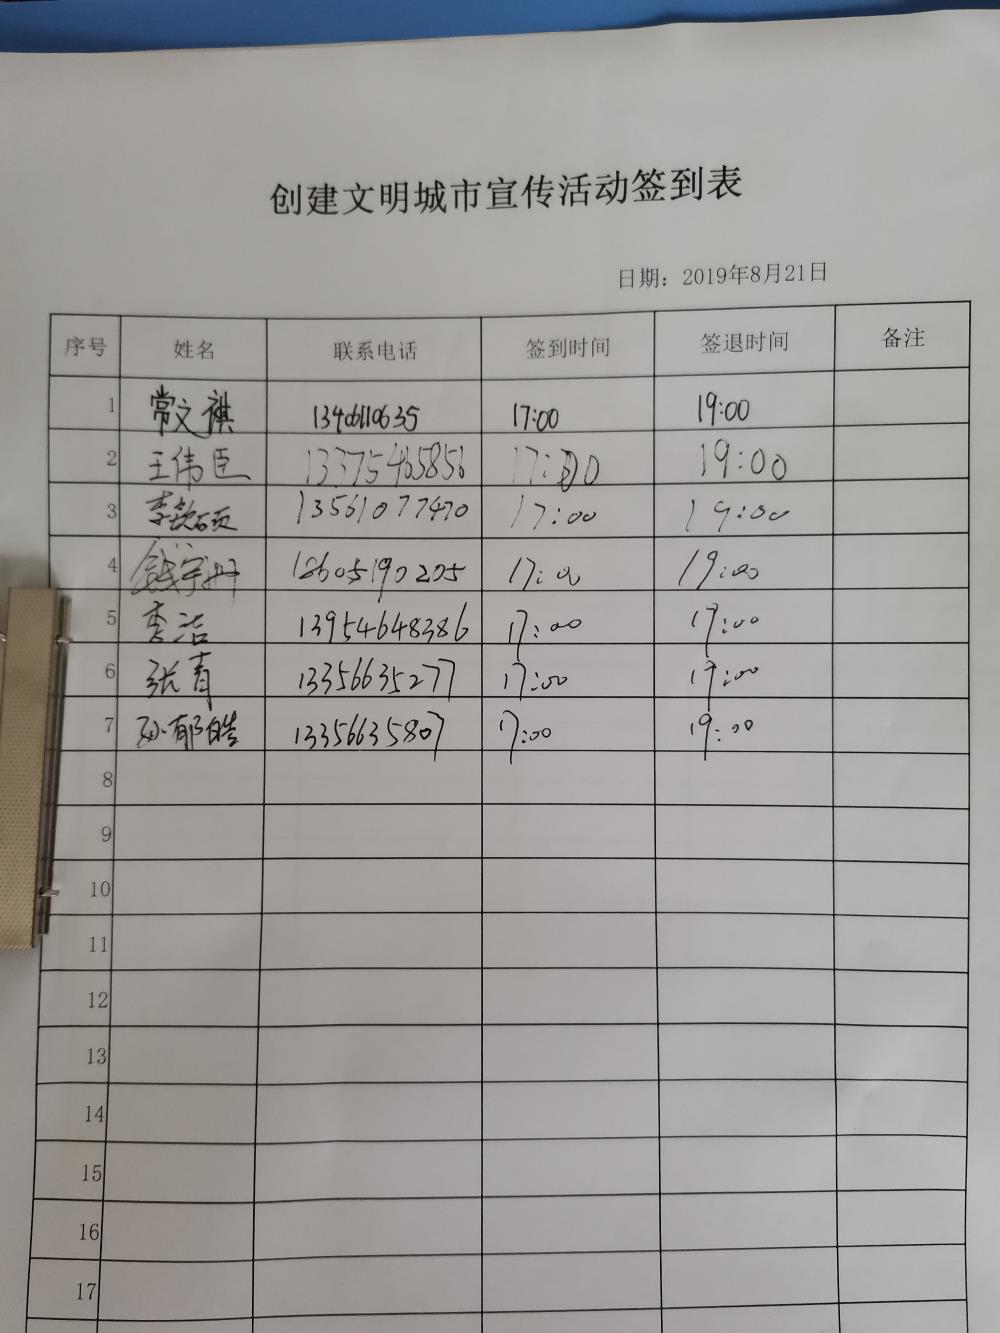 创建文明城市宣传活动签到表
日期：2019年8月21日
序号 姓名 联系电话 签到时间 签退时间 备注
1 常文祺 13406110635 17:00 19:00
2 王伟臣 13375465856 17:00 19:00
3 李敦硕 13561077470 17:00 19:00
4 钱宇 18605190205 17:00 19:00
5 李洁 13954648386 17:00 17:00
6 张青 13356635277 17:00 17:00
7 孙郁皓 13356635807 17:00 19:00
8
9
10
11
12
13
14
15
16
17